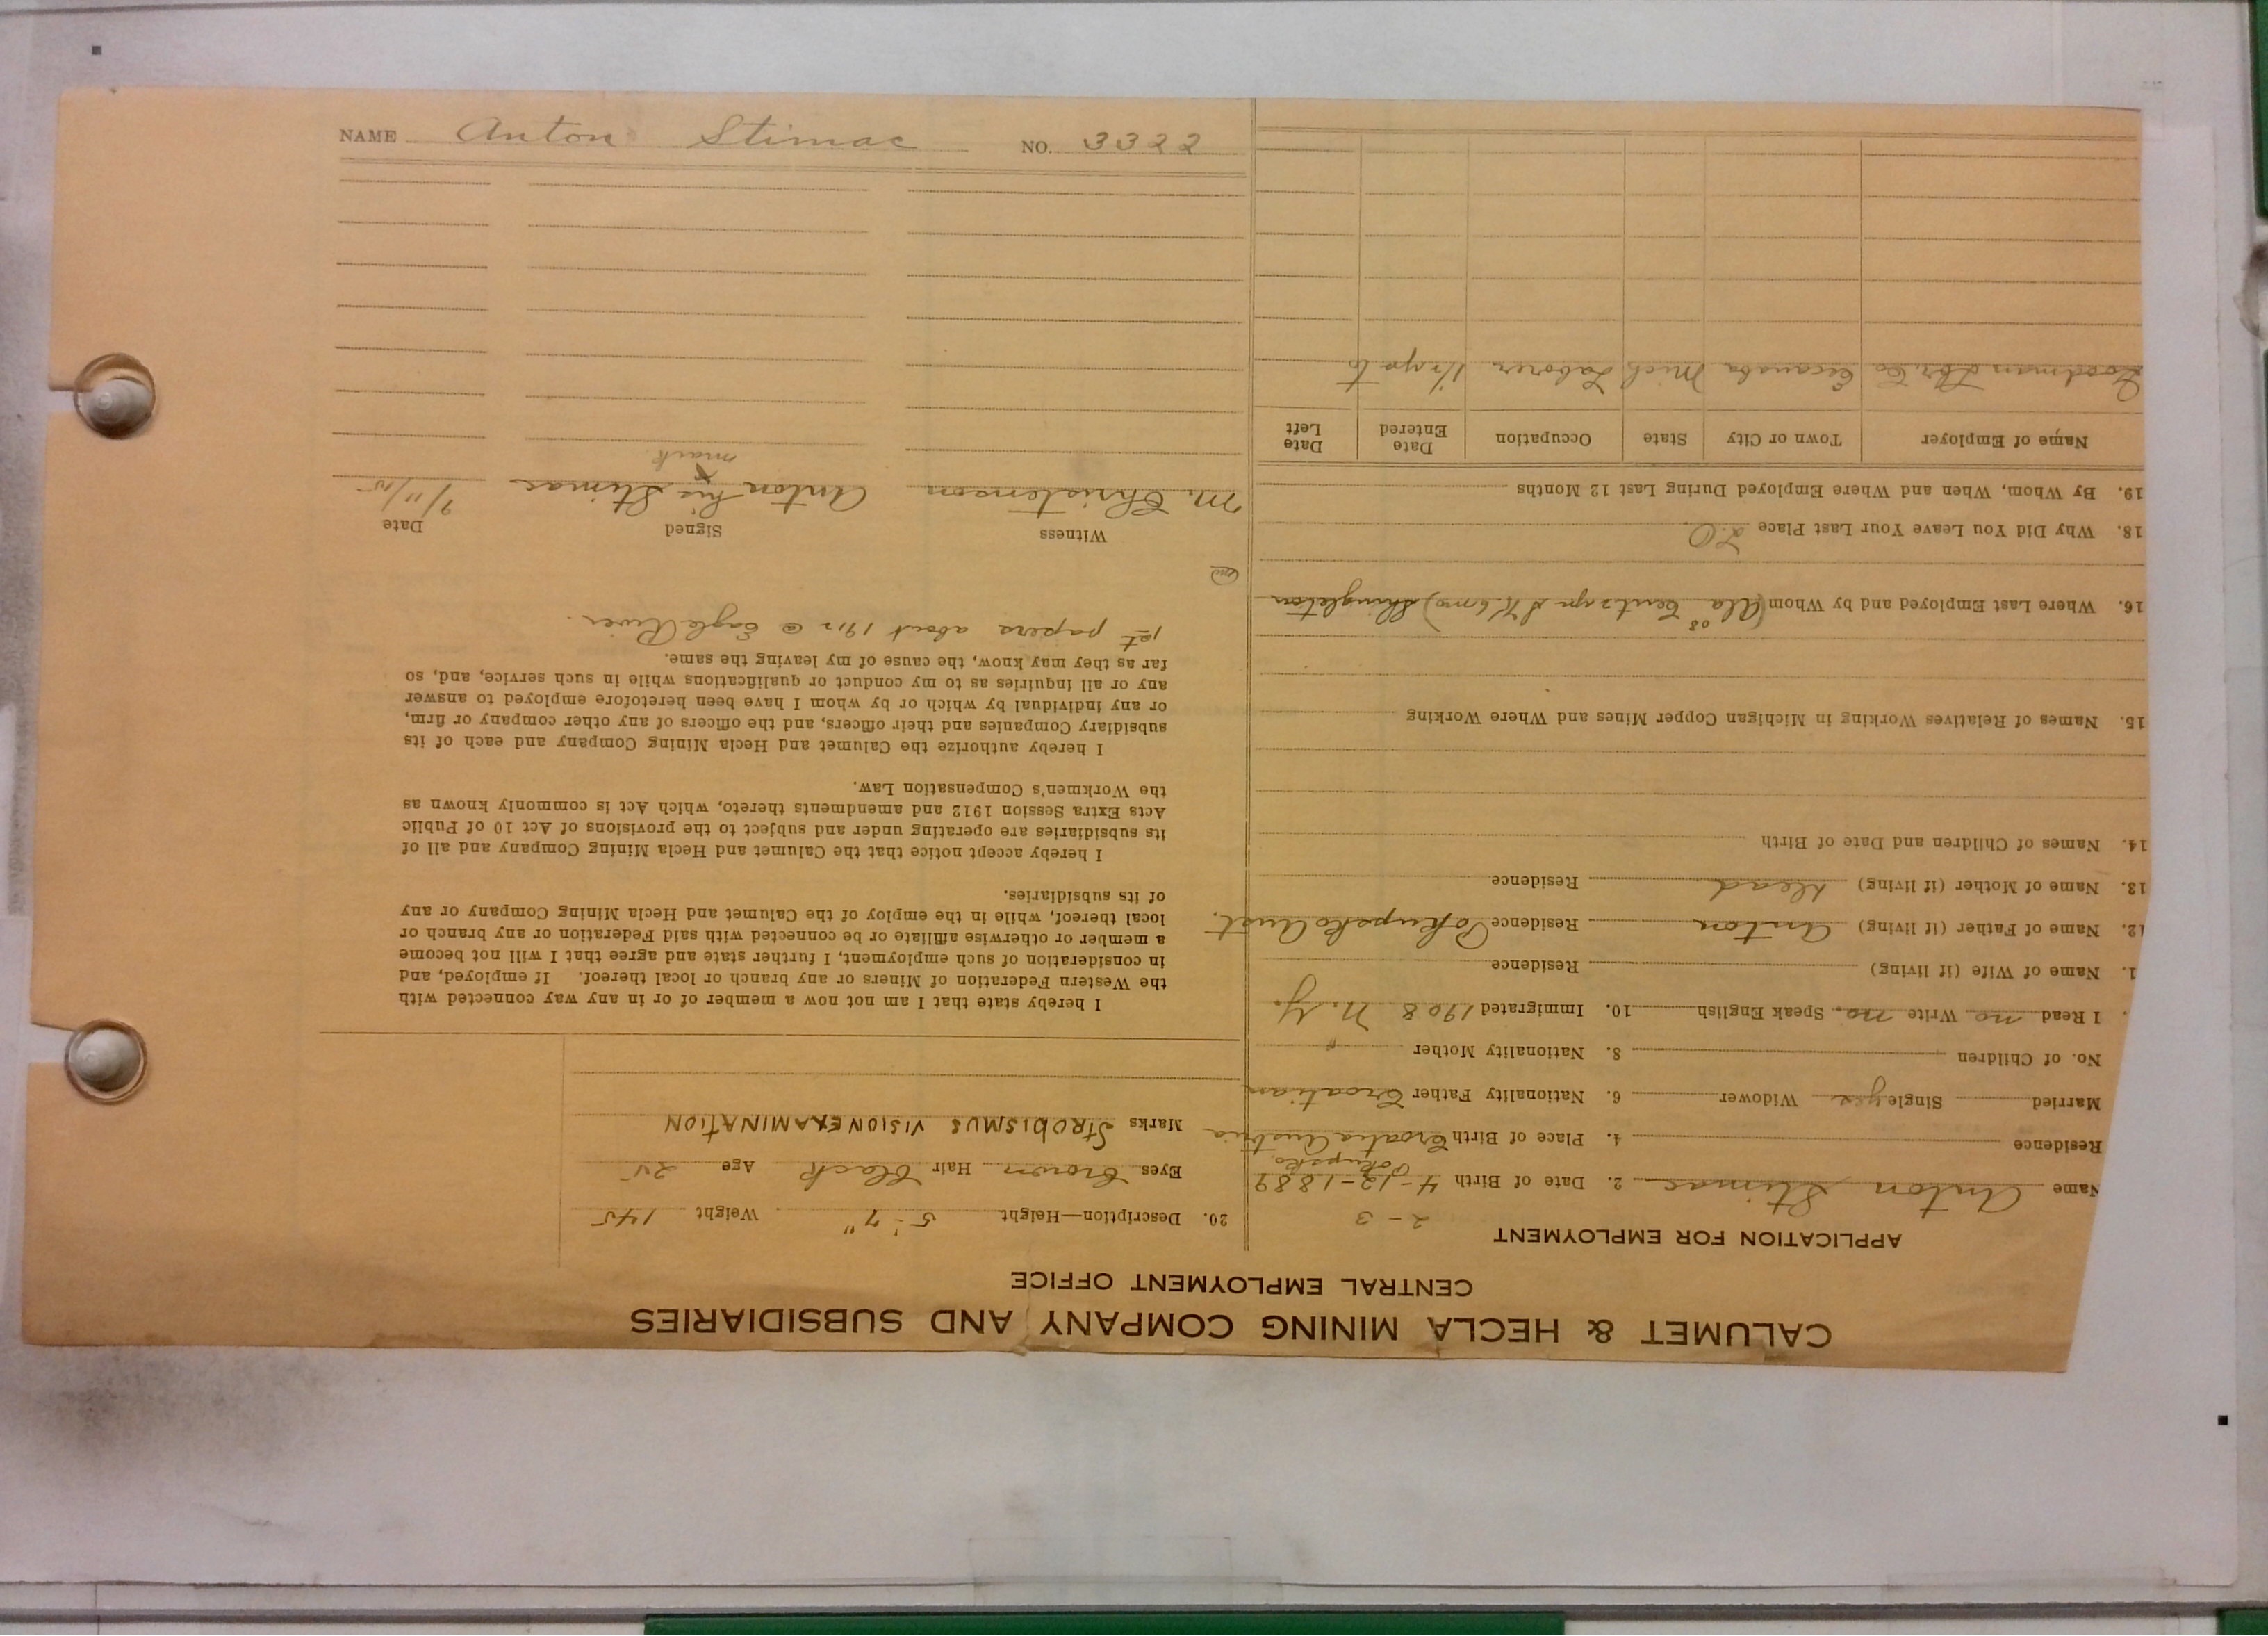 CALUMET & HECLA MINING COMPANY AND SUBSIDIARIES
CENTRAL EMPLOYMENT OFFICE
APPLICATION FOR EMPLOYMENT
2-3
Name Anton Stimac 2. Date of Birth 4-12-1889
Pokupsko
Residence 4. Place of Birth Croatia Austria
Married Single yes Widower 6. Nationality Father Croatian
No. of Children 8. Nationality Mother "
. I Read no Write no Speak English 10. Immigrated 1908 N.Y.
1. Name of Wife (if living) Residence
12. Name of Father (if living) Anton Residence Pokupsko Aust.
13. Name of Mother (if living) Dead Residence
14. Names of Children and Date of Birth
15. Names of Relatives Working in Michigan Copper Mines and Where Working
16. Where Last Employed and by Whom (Ala 08 Cent 2 yr 6 mo) Shingleton
18. Why Did You Leave Your Last Place L.O.
19. By Whom, When and Where Employed During Last 12 Months
Name of Employer Town or City State Occupation Date Entered Date Left
Goodman Lbr. Co Escanaba Mich Laborer 1/2 yr to
20. Description—Height 5' 7" Weight 145
Eyes Brown Hair Black Age 25
Marks STROBISMUS VISION EXAMINATION
I hereby state that I am not now a member of or in any way connected with
the Western Federation of Miners or any branch or local thereof. If employed, and
in consideration of such employment, I further state and agree that I will not become
a member or otherwise affiliate or be connected with said Federation or any branch or
local thereof, while in the employ of the Calumet and Hecla Mining Company or any
of its subsidiaries.
I hereby accept notice that the Calumet and Hecla Mining Company and all of
its subsidiaries are operating under and subject to the provisions of Act 10 of Public
Acts Extra Session 1912 and amendments thereto, which Act is commonly known as
the Workmen's Compensation Law.
I hereby authorize the Calumet and Hecla Mining Company and each of its
subsidiary Companies and their officers, and the officers of any other company or firm,
or any individual by which or by whom I have been heretofore employed to answer
any or all inquiries as to my conduct or qualifications while in such service, and, so
far as they may know, the cause of my leaving the same.
1st papers about 1912 @ Eagle River.
Witness Signed Date
M. Christenson Anton his Stimac 9/11/15
X
mark
NAME Anton Stimac NO. 3322